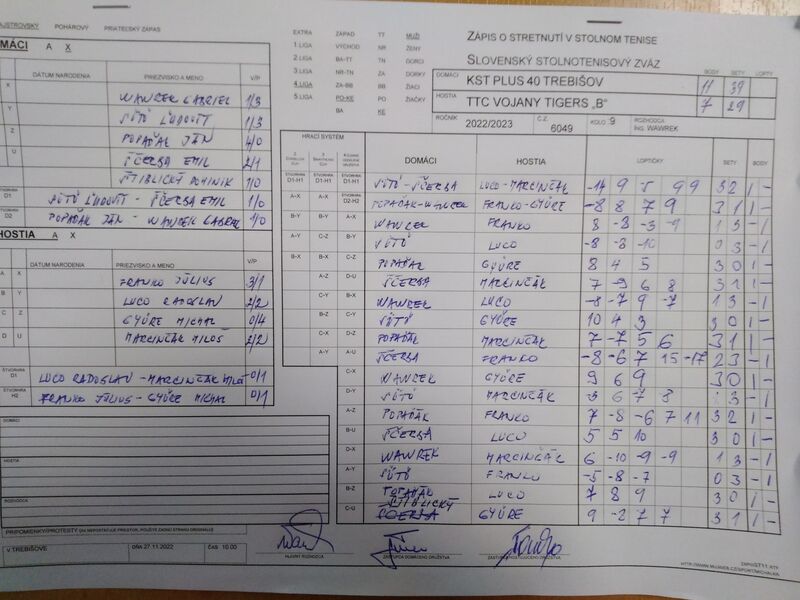 MAJSTROVSKÝ POHÁROVÝ PRIATEĽSKÝ ZÁPAS
DOMÁCI A X
DÁTUM NARODENIA PRIEZVISKO A MENO V/P
X WAWREK GABRIEL 1/3
Y SÚTÓ ĽUDOVÍT 1/3
Z POPAĎÁK JÁN 4/0
U ŠČERBA EMIL 2/1
ŠTIBLICKÝ DOMINIK 1/0
ŠTVORHRA D1 SÚTÓ ĽUDOVÍT - ŠČERBA EMIL 1/0
D2 POPAĎÁK JÁN - WAWREK GABRIEL 1/0
HOSTIA A X
DÁTUM NARODENIA PRIEZVISKO A MENO V/P
A X FRANKO JÚLIUS 3/1
B Y LUCO RADOSLAV 2/2
C Z GYÜRE MICHAL 0/4
D U MARCINČÁK MILOŠ 2/2
ŠTVORHRA D1 LUCO RADOSLAV - MARCINČÁK MILOŠ 0/1
ŠTVORHRA H2 FRANKO JÚLIUS - GYÜRE MICHAL 0/1
DOMÁCI
HOSTIA
ROZHODCA
PRIPOMIENKY/PROTESTY
V TREBIŠOVE dňa 27.11.2022 čas 10.00
EXTRA ZÁPAD TT MUŽI
1 LIGA VÝCHOD NR ŽENY
2 LIGA BA-TT TN DORCI
3 LIGA NR-TN ZA DORKY
4 LIGA ZA-BB BB ŽIACI
5 LIGA PO-KE PO ŽIAČKY
BA KE
ZÁPIS O STRETNUTÍ V STOLNOM TENISE
SLOVENSKÝ STOLNOTENISOVÝ ZVÄZ
BODY SETY LOPTY
DOMÁCI KST PLUS 40 TREBIŠOV 11 39
HOSTIA TTC VOJANY TIGERS „B" 7 29
ROČNÍK 2022/2023 Č.Z. 6049 KOLO 9 ROZHODCA Ing. WAWREK
HRACÍ SYSTÉM DOMÁCI HOSTIA LOPTIČKY SETY BODY
D1-H1 D1-H1 D1-H1 SÚTÓ - ŠČERBA LUCO - MARCINČÁK -14 9 5 9 9 3 2 1 -
A-X A-X D2-H2 POPAĎÁK - WAWREK FRANKO - GYÜRE -8 8 7 9 3 1 1 -
B-Y B-Y A-X WAWREK FRANKO 8 -3 -3 -9 1 3 - 1
A-Y C-Z B-Y SÚTÓ LUCO -8 -3 -10 0 3 - 1
B-X B-X C-Z POPAĎÁK GYÜRE 8 4 5 3 0 1 -
A-Z D-U ŠČERBA MARCINČÁK 7 -9 6 8 3 1 1 -
C-Y B-X WAWREK LUCO -8 -7 9 -7 1 3 - 1
B-Z SÚTÓ GYÜRE 10 4 3 3 0 1 -
C-X D-Z POPAĎÁK MARCINČÁK 7 -7 5 6 3 1 1 -
A-Y A-U ŠČERBA FRANKO -8 -6 7 15 -17 2 3 - 1
C-X WAWREK GYÜRE 9 6 9 3 0 1 -
D-Y SÚTÓ MARCINČÁK 6 7 8 3 - 1
A-Z POPAĎÁK FRANKO 7 -8 -6 7 11 3 2 1 -
B-U ŠČERBA LUCO 5 5 10 3 0 1 -
D-X WAWREK MARCINČÁK 6 -10 -9 -9 1 3 - 1
A-Y SÚTÓ FRANKO -5 -8 -7 0 3 - 1
B-Z POPAĎÁK LUCO 7 8 9 3 0 1 -
C-U ŠTIBLICKÝ ŠČERBA GYÜRE 9 -2 7 7 3 1 1 -
HLAVNÝ ROZHODCA ZÁSTUPCA DOMÁCEHO DRUŽSTVA